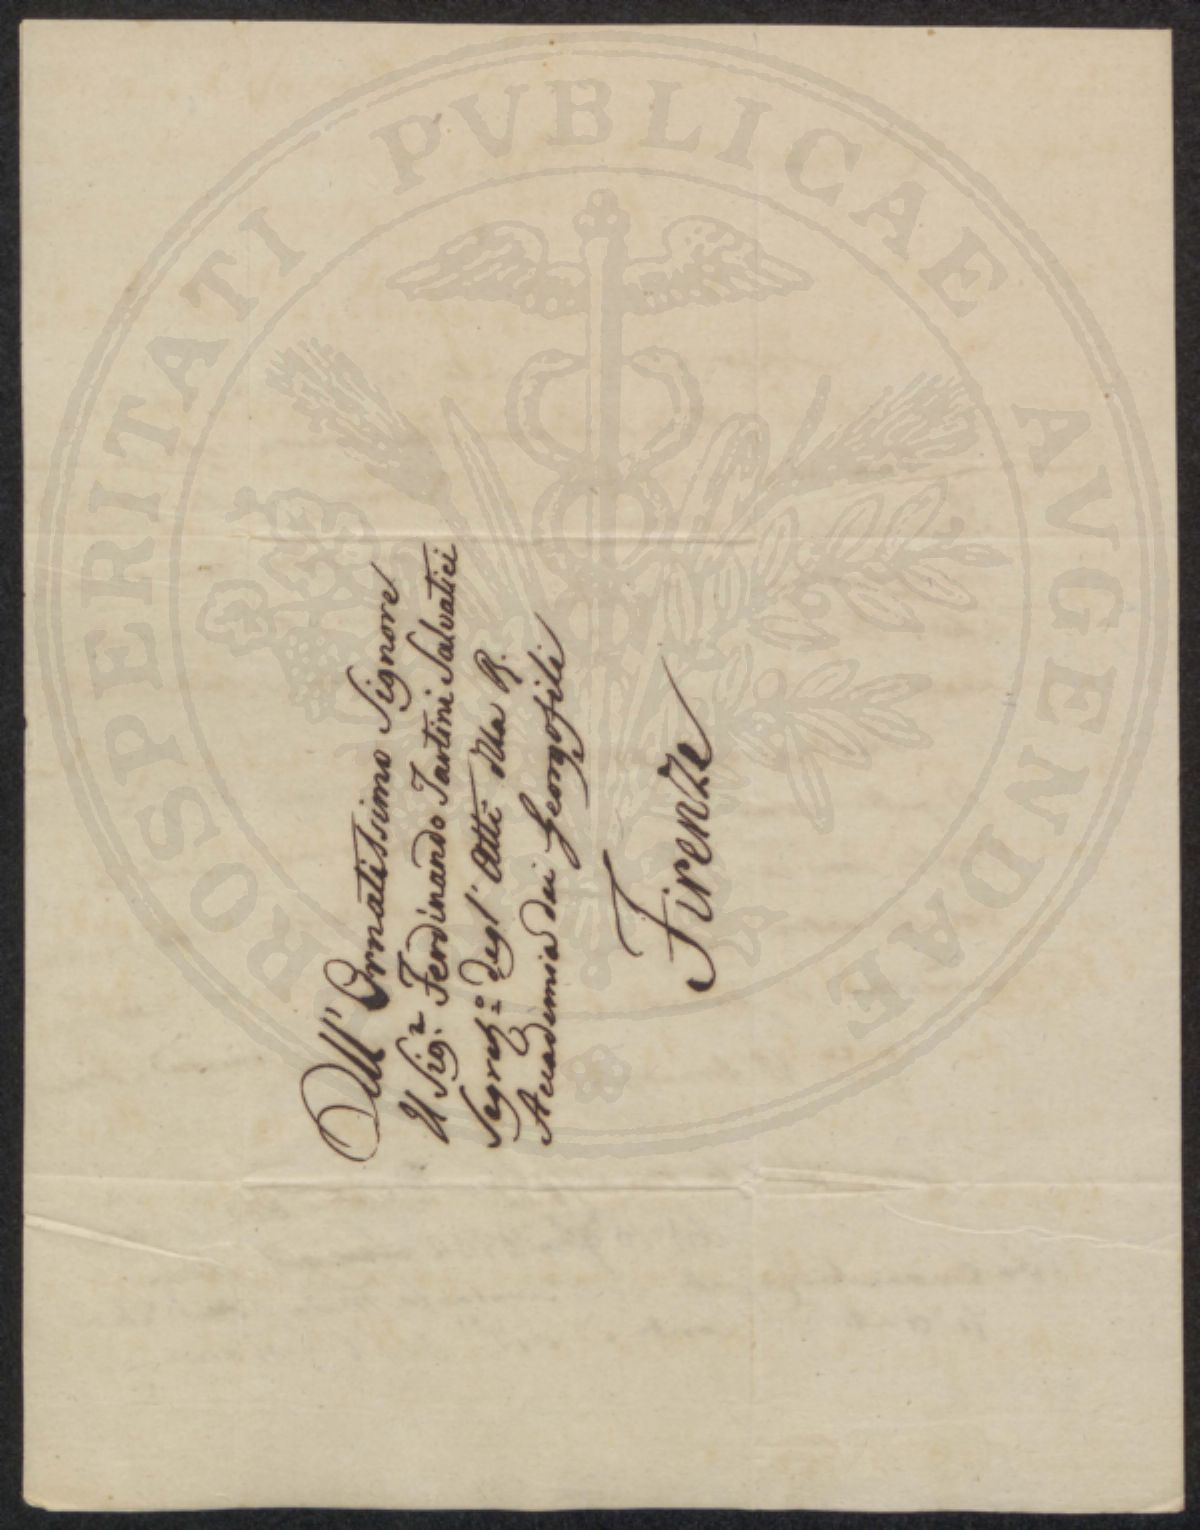 All' Ornatissimo Signore
Il Sig.r Ferdinando Tartini Salvatici
Segret.o degl' Atti della R.
Accademia dei Georgofili
Firenze
PROSPERITATI PVBLICAE AVGENDAE